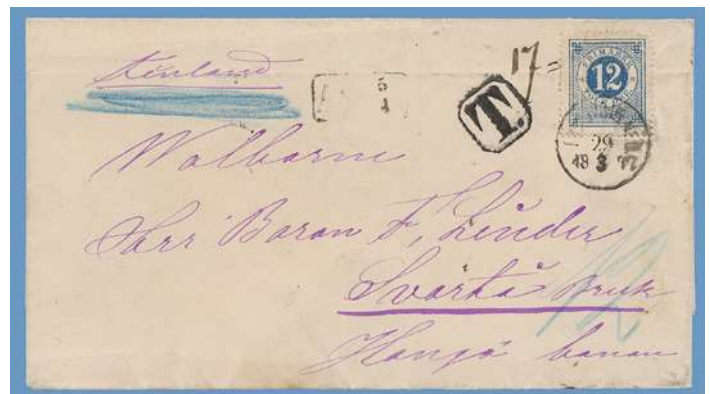 Finland
17
T.
12
29
18 3 77
5
4
Walborne
Herr Baron F. Linder
Svartå Bruk
Hangö banan
12